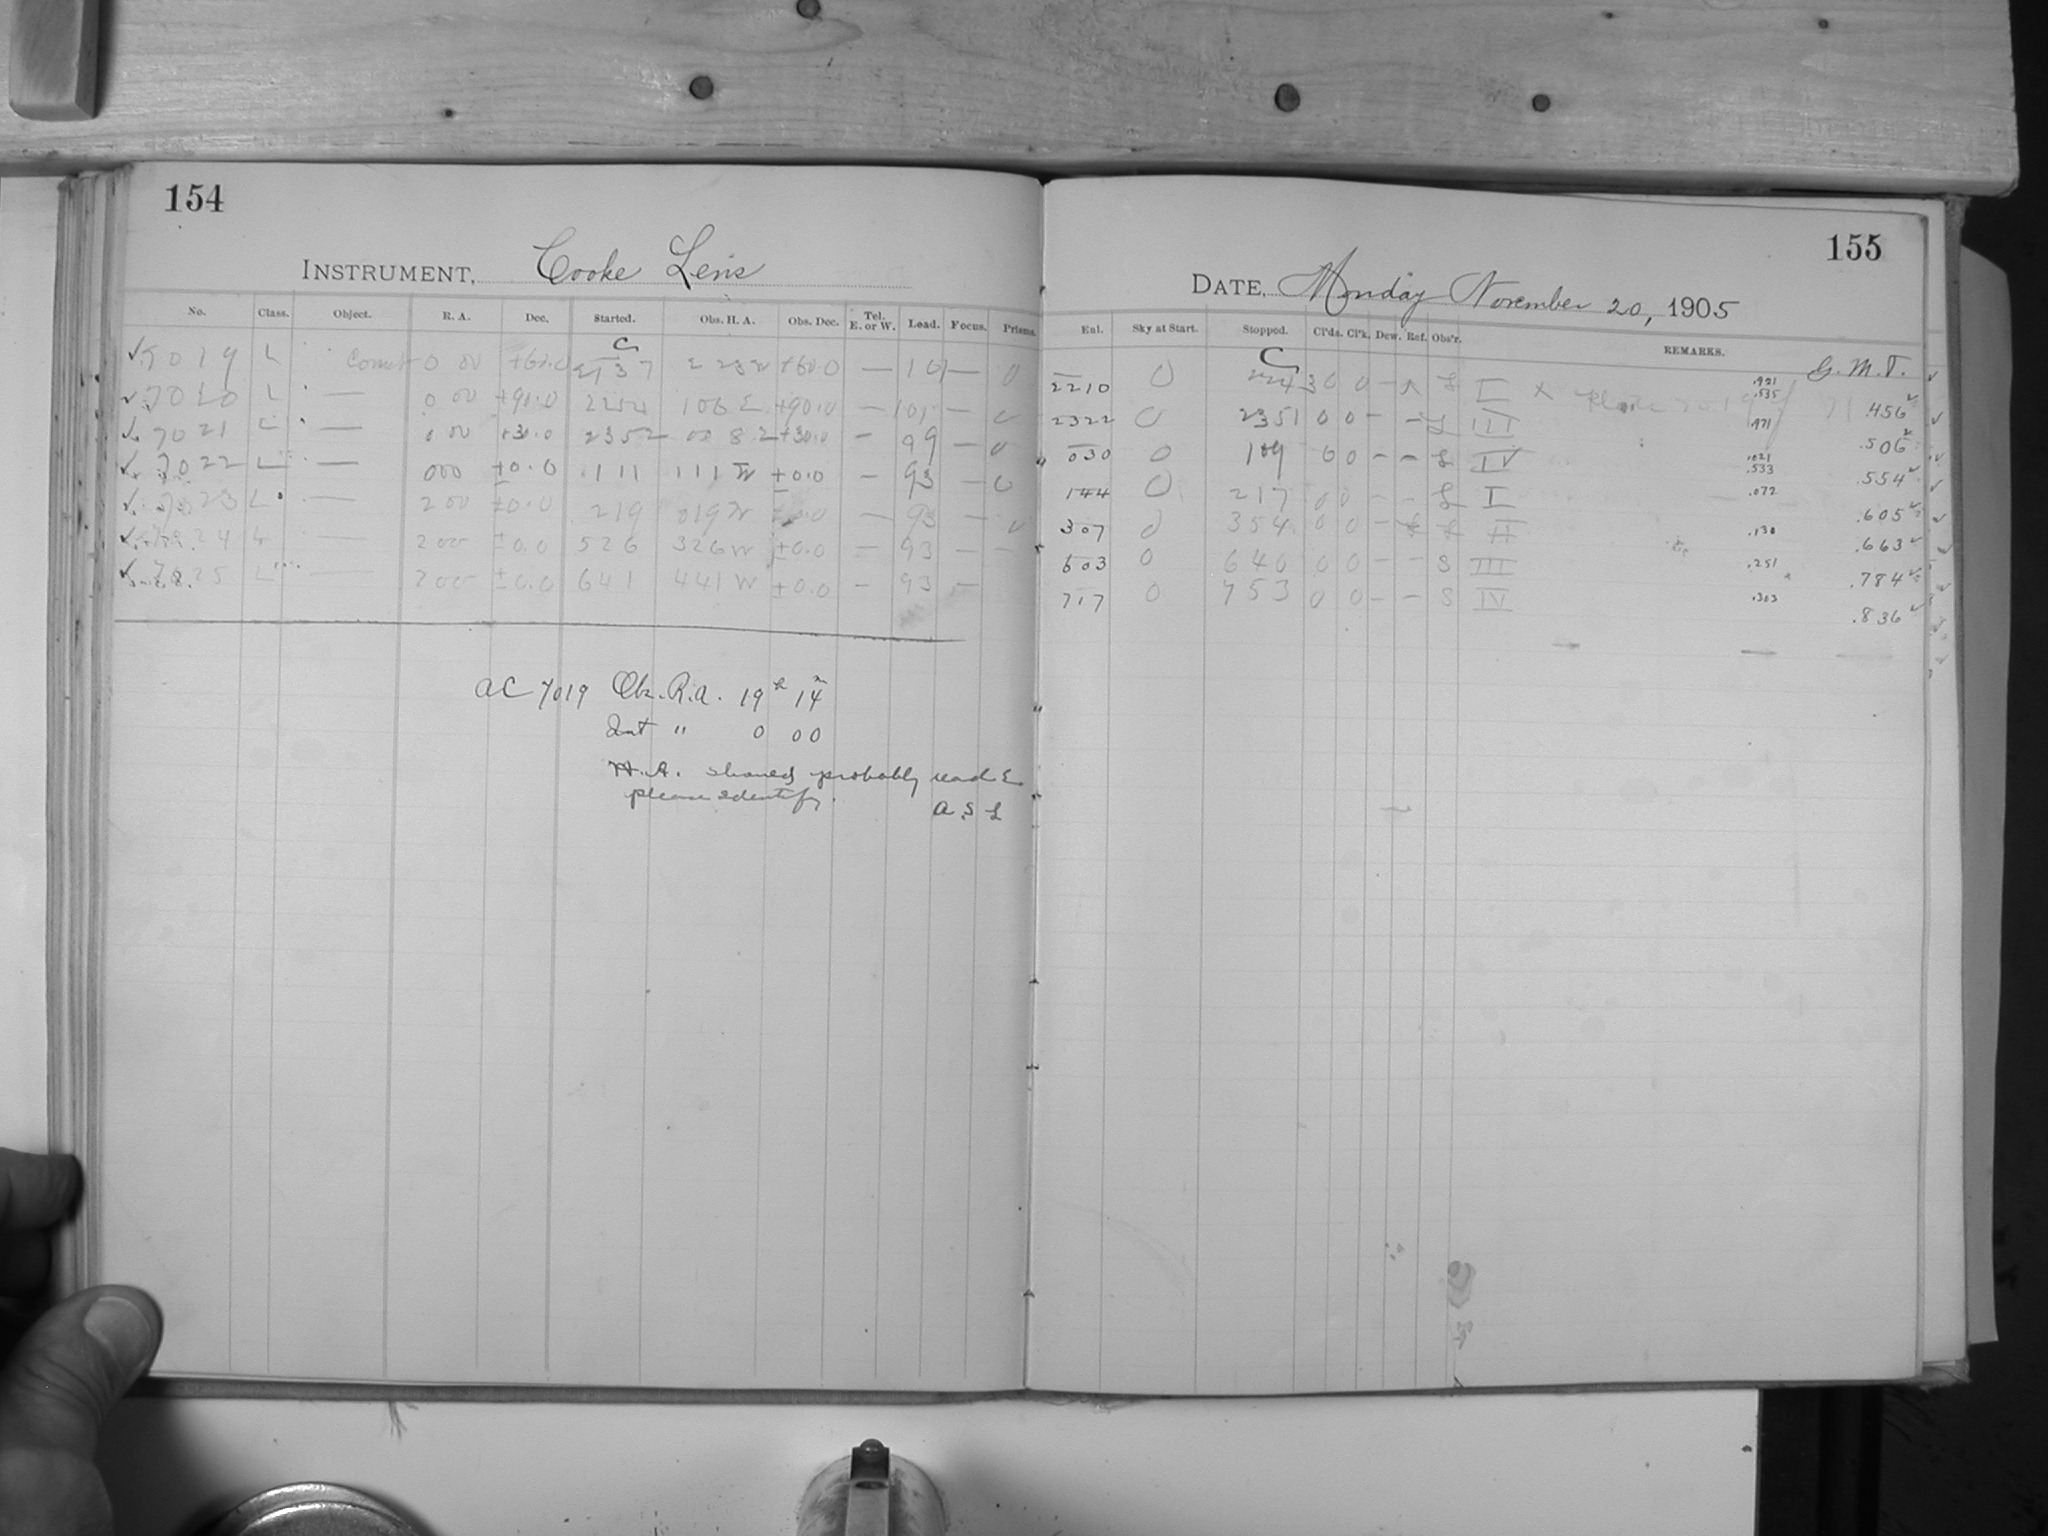 154
INSTRUMENT, Cooke Lens
No. Class. Object. R. A. Dec. Started. Obs. H. A. Obs. Dec. Tel. E. or W. Load. Focus. Prisms.
C
7019 L Comet 0 00 +60.0 2137 2 23 W +60.0 — 101 — 0
7020 L — 0 00 +90.0 2252 106 E +90.0 — 101 — 0
7021 L — 0 00 +30.0 2352 00 8 E +30.0 — 99 — 0
7022 L — 000 ±0.0 111 111 W ±0.0 — 93 — 0
7023 L — 200 ±0.0 219 019 W ±0.0 — 93 — 0
7024 L — 200 ±0.0 526 326 W ±0.0 — 93 — —
7025 L — 200 ±0.0 641 441 W ±0.0 — 93 —
AC 7019 Obs. R.A. 19h 14m
Int " 0 00
H.A. should probably read E
please identify.
A.S.L
155
DATE, Monday November 20, 1905
Enl. Sky at Start. Stopped. Cl'ds. Cl'k. Dew. Ref. Obs'r. REMARKS.
G. M. T.
C
2210 0 2243 0 0 — L I X Plate 7019 .921 .535 .456
2322 0 2351 0 0 — — L III .971 .506
030 0 109 0 0 — — L IV .021 .533 .554
144 0 217 0 0 — — L I .072 .605
307 0 354 0 0 — L II .130 .663
603 0 640 0 0 — — S III .251 .784
717 0 753 0 0 — — S IV .303 .836